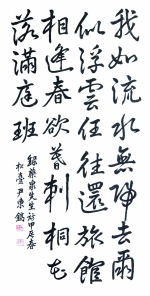 我如流水無歸去爾
似浮雲任往還旅館
相逢春欲暮刺桐花
落滿庭班
錄藥泉先生詩甲辰春
松臺尹東鎬